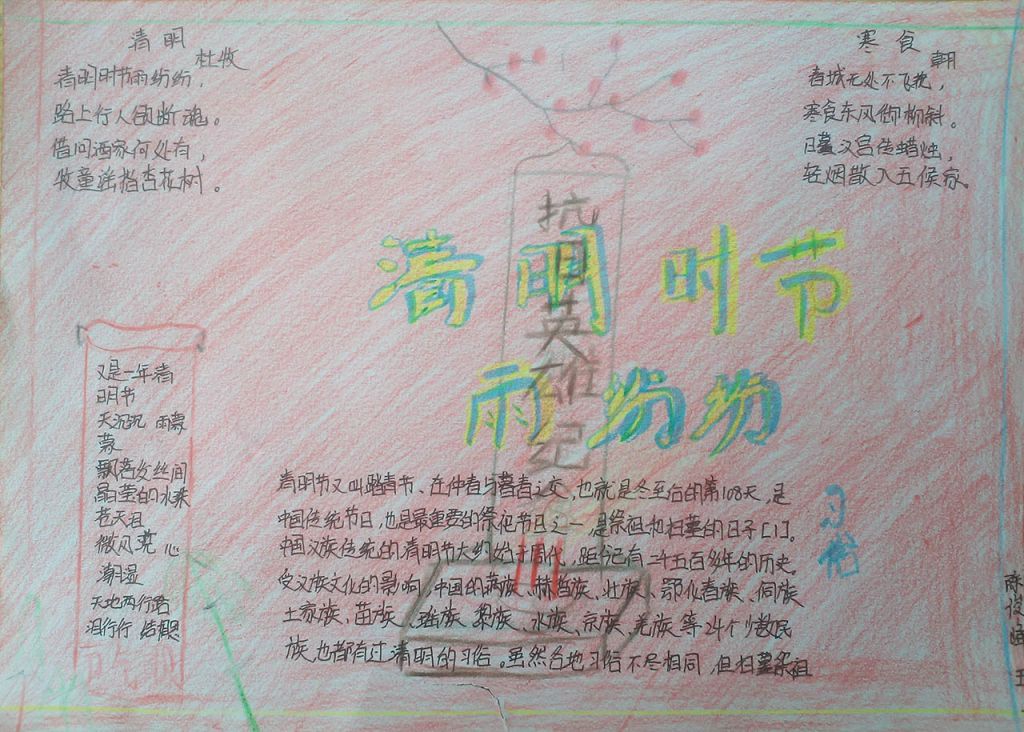 清明
杜牧
清明时节雨纷纷，
路上行人欲断魂。
借问酒家何处有，
牧童遥指杏花树。
寒食
朝
春城无处不飞花，
寒食东风御柳斜。
日暮汉宫传蜡烛，
轻烟散入五侯家。
清明时节
雨纷纷
抗日英雄纪
又是一年清
明节
天沉沉 雨蒙
蒙
飘落发丝间
晶莹的水珠
苍天泪
微风亮 心
潮湿
天地两行路
泪行行
习俗
清明节又叫踏青节、在仲春与暮春之交，也就是冬至后的第108天，是
中国传统节日，也是最重要的祭祀节日之一，是祭祖和扫墓的日子[1]。
中国汉族传统的清明节大约始于周代，距今已有二千五百多年的历史。
受汉族文化的影响，中国的满族、赫哲族、壮族、鄂伦春族、侗族
土家族、苗族、瑶族、黎族、水族、京族、羌族等24个少数民
族，也都有过清明的习俗。虽然各地习俗不尽相同，但扫墓祭祖